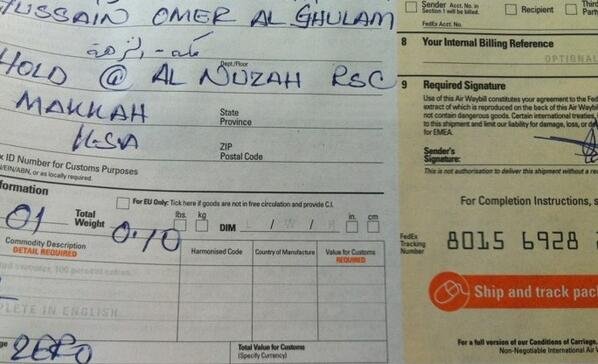 HUSSAIN OMER AL GHULAM
مكه - النزهة
Dept./Floor
HOLD @ AL NUZAH RSC
MAKKAH
State
Province
KSA
ZIP
Postal Code
x ID Number for Customs Purposes
/EIN/ABN, or as locally required.
formation
For EU Only: Tick here if goods are not in free circulation and provide C.I.
01
Total
Weight
0.10
lbs.
kg
DIM
L / W / H
in.
cm
Commodity Description
DETAIL REQUIRED
Harmonised Code
Country of Manufacture
Value for Customs
REQUIRED
PLETE IN ENGLISH
ZERO
Total Value for Customs
(Specify Currency)
Sender Acct. No. in
Section 1 will be billed.
Recipient
Third
Part
FedEx Acct. No.
8 Your Internal Billing Reference
OPTIONAL
9 Required Signature
Use of this Air Waybill constitutes your agreement to the Fed
extract of which is reproduced on the back of this Air Waybil
not contain dangerous goods. Certain international treaties,
to this shipment and limit our liability for damage, loss, or de
for EMEA.
Sender's
Signature:
This is not authorisation to deliver this shipment without a re
For Completion Instructions, s
FedEx
Tracking
Number
8015 6928
Ship and track pac
For a full version of our Conditions of Carriage,
Non-Negotiable International Air W